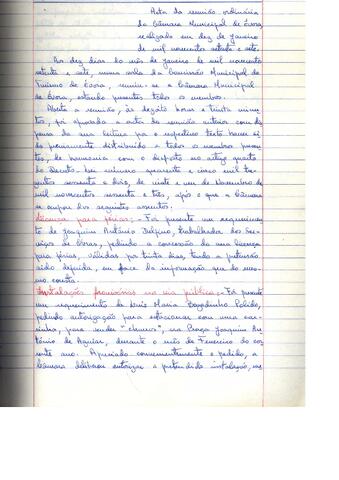 Acta da reunião ordinária
da Câmara Municipal de Évora
realizada em dez de Janeiro
de mil novecentos setenta e sete.
Aos dez dias do mês de Janeiro de mil novecentos
setenta e sete, numa sala da Comissão Municipal de
Turismo de Évora, reuniu-se a Câmara Municipal
de Évora, estando presentes todos os membros.
Aberta a reunião, às dezoito horas e trinta minu-
tos, foi aprovada a acta da reunião anterior com dis-
pensa da sua leitura por o respectivo texto haver si-
do previamente distribuído a todos os membros presen-
tes, de harmonia com o disposto no artigo quarto
do Decreto-Lei número quarenta e cinco mil tre-
zentos sessenta e dois, de vinte e um de Novembro de
mil novecentos sessenta e três, após o que a Câmara
se ocupou dos seguintes assuntos:
Licença para férias: - Foi presente um requerimen-
to de Joaquim António Delfino, trabalhador dos Ser-
viços de Obras, pedindo a concessão de uma licença
para férias, válidas por trinta dias, tendo a pretensão
sido deferida, em face da informação que do mes-
mo consta.
Instalações provisórias na via pública: - Foi presente
um requerimento de Luís Maria Bogadinho Polido,
pedindo autorização para estacionar com uma car-
rinha, para vender "churros", na Praça Joaquim An-
tónio de Aguiar, durante o mês de Fevereiro do cor-
rente ano. Apreciado convenientemente o pedido, a
Câmara deliberou autorizar a pretendida instalação, na